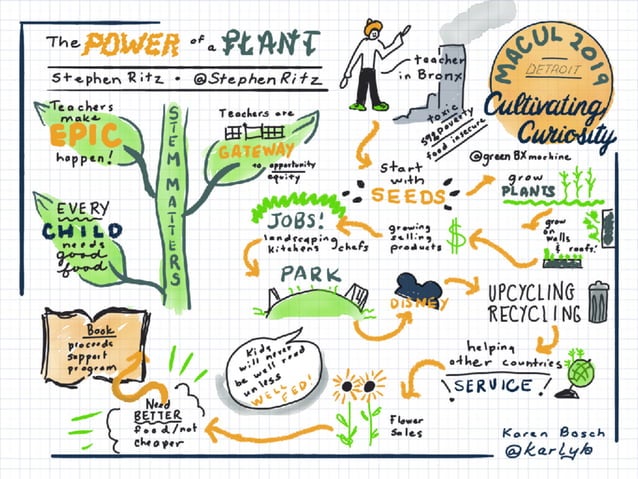 The POWER of a PLANT
Stephen Ritz • @StephenRitz
teacher
in Bronx
toxic
59% poverty
food insecure
MACUL 2019
DETROIT
Cultivating
Curiosity
@greenBXmachine
Teachers
make
EPIC
happen!
STEM MATTERS
Teachers are
GATEWAY
to opportunity
equity
EVERY
CHILD
needs
good
food
Start
with
SEEDS
grow
PLANTS
grow
on
walls
& roofs!
growing
selling
products
$
JOBS!
landscaping
kitchens chefs
PARK
DISNEY
UPCYCLING
RECYCLING
helping
other countries
SERVICE!
Flower
Sales
Kids
will never
be well read
unless
WELL FED!
Need
BETTER
food/not
cheaper
Book
proceeds
support
program
Karen Bosch
@karlyb